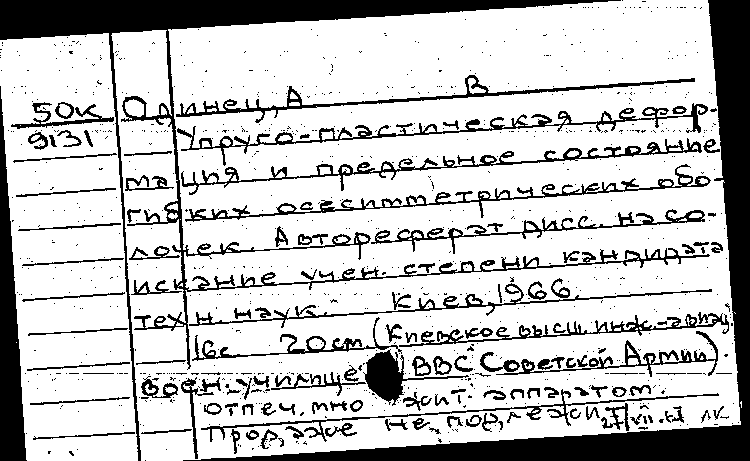 50к Одинец, А В
9131 Упруго-пластическая дефор-
мация и предельное состояние
гибких осесимметрических обо-
лочек. Автореферат дисс. на со-
искание учен. степени кандидата
техн. наук. Киев, 1966.
16с. 20см. (Киевское высш. инж.-авиац.
воен. училище ВВС Советской Армии).
отпеч. множит. аппаратом.
Продаже не подлежит. 27/VII.67 ЛК